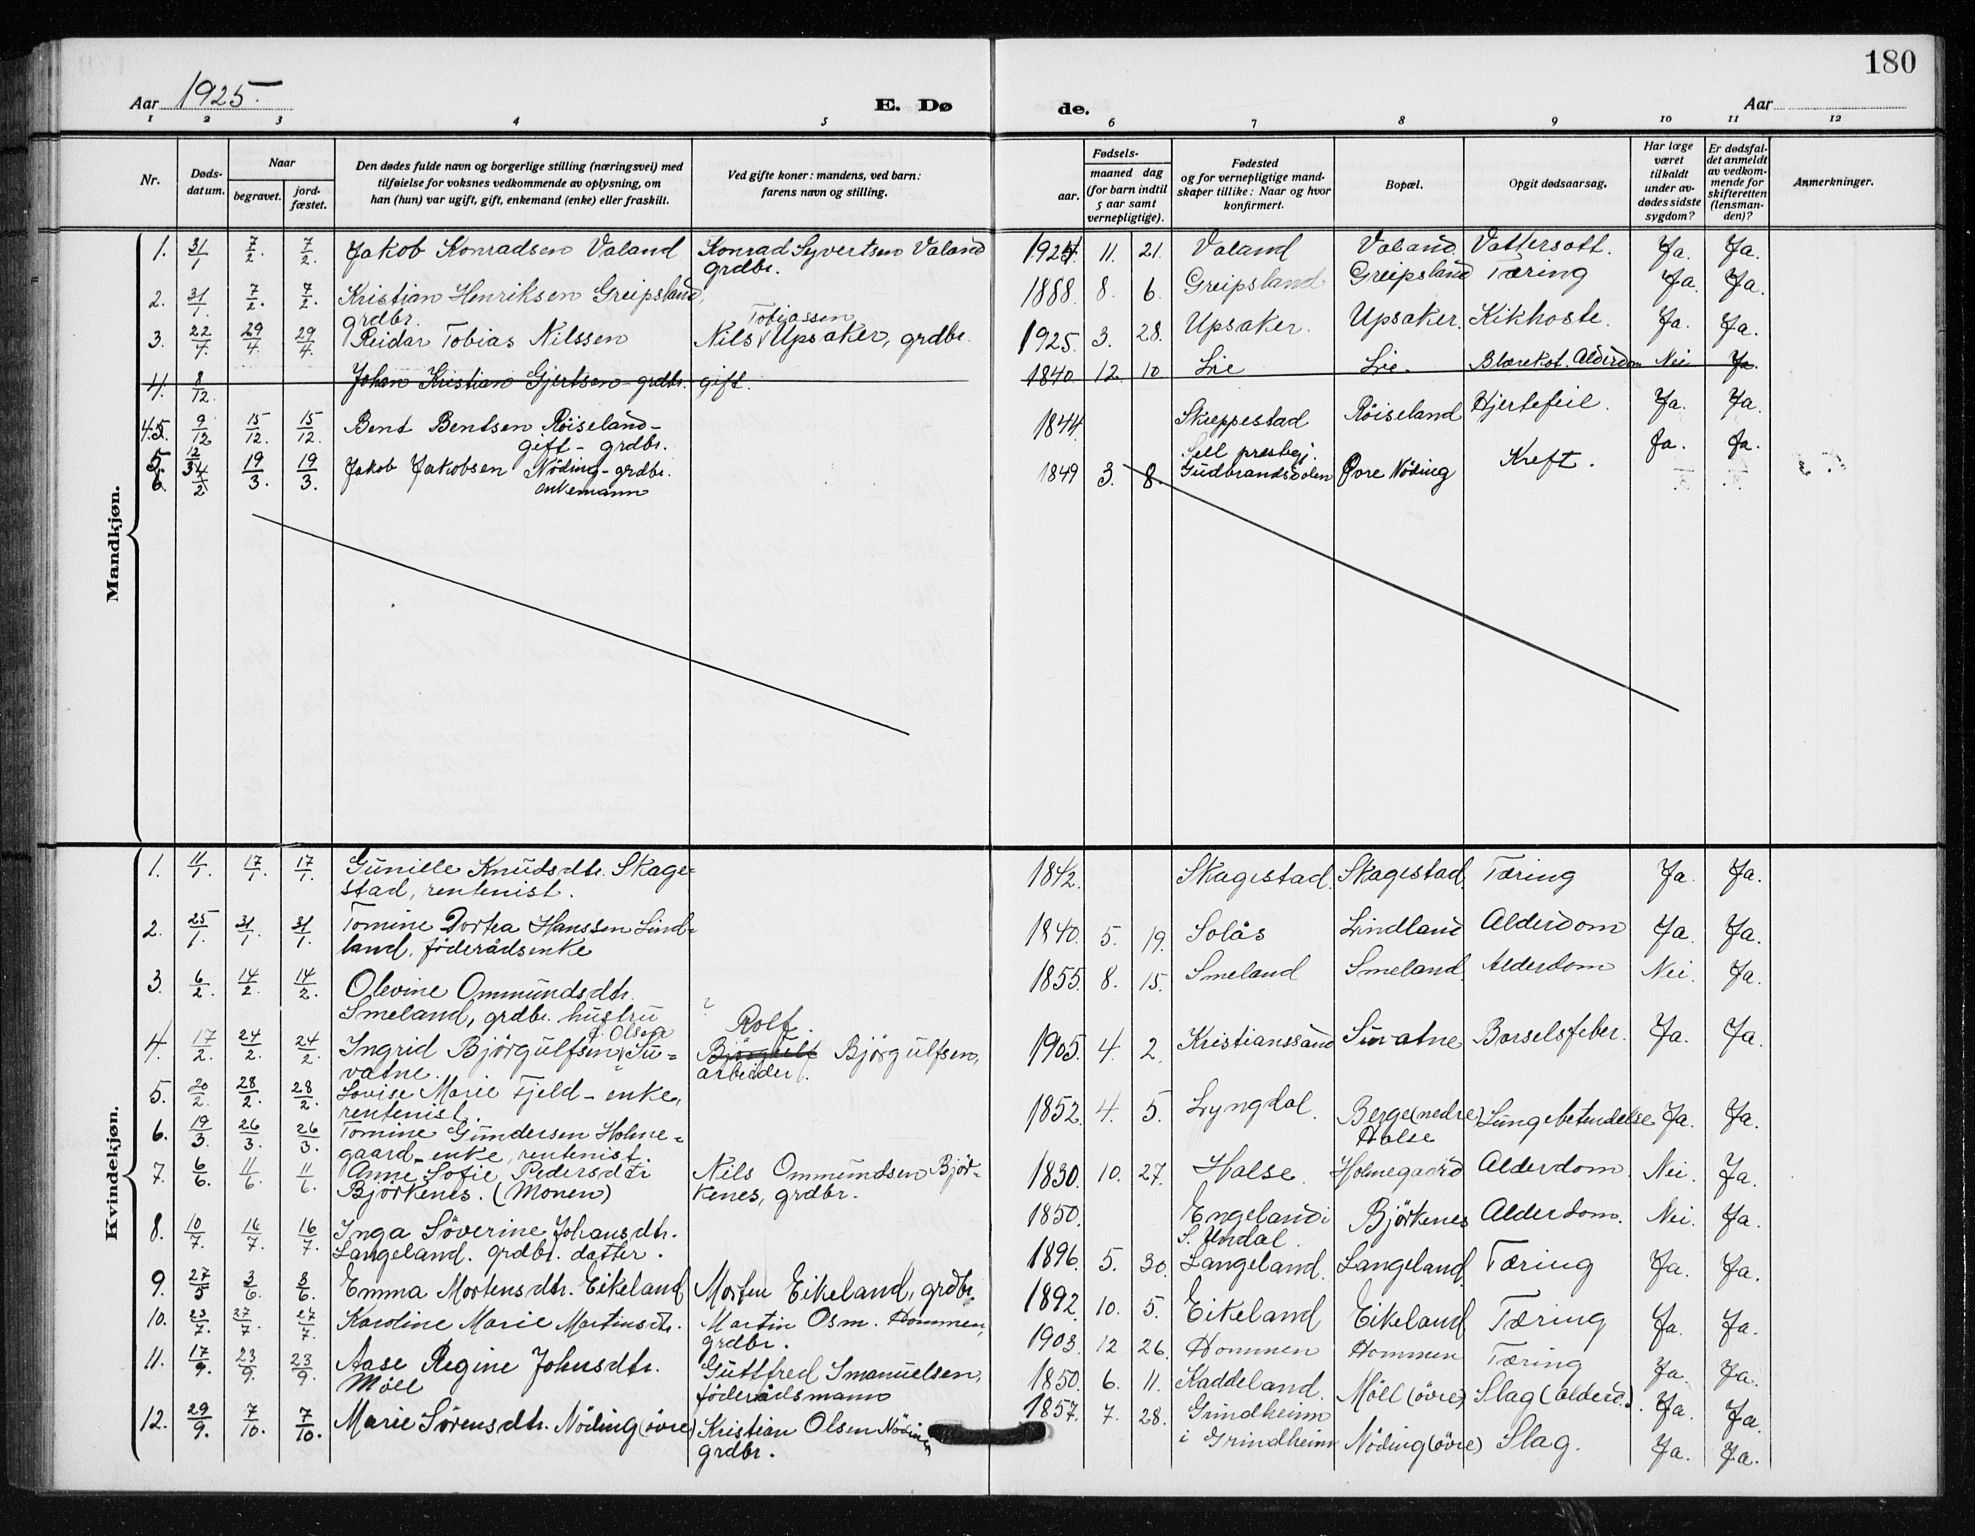 180
Aar 1925.
E. Døde.
Aar
1 2 3 4 5 6 7 8 9 10 11 12
Nr.
Døds-
datum.
Naar
begravet.
jord-
fæstet.
Den dødes fulde navn og borgerlige stilling (næringsvei) med
tilføielse for voksnes vedkommende av oplysning, om
han (hun) var ugift, gift, enkemand (enke) eller fraskilt.
Ved gifte koner: mandens, ved barn:
farens navn og stilling.
Fødsels-
aar.
maaned dag
(for barn indtil
5 aar samt
vernepligtige).
Fødested
og for vernepligtige mand-
skaper tillike: Naar og hvor
konfirmert.
Bopæl.
Opgit dødsaarsag.
Har læge
været
tilkaldt
under av-
dødes sidste
sygdom?
Er dødsfal-
det anmeldt
av vedkom-
mende for
skifteretten
(lensman-
den)?
Anmerkninger.
Mandkjøn.
1. 31/1 7/2. 7/2. Jakob Konradsen Valand Konrad Syvertsen Valand grdbr. 1924. 11. 21. Valand Valand. Vattersott. Ja. Ja.
2. 31/1. 7/2. 7/2. Kristian Henriksen Greipsland, grdbr. 1888. 8. 6. Greipsland Greipsland Tæring Ja. Ja.
3. 22/4. 29/4. 29/4. Reidar Tobias Nilssen Nils Tobiassen Upsaker, grdbr. 1925. 3. 28. Upsaker. Upsaker. Kikhoste. Ja. Ja.
4. 8/12. Johan Kristian Gjertsen - grdbr. gift. 1840. 12. 10. Lie Lie. Blærekat. Alderdom Nei Ja
4. 5. 9/12 15/12. 15/12. Bent Bentsen Röiseland - gift - grdbr. 1844. Skieppestad Röiseland Hjertefeil. Ja. Ja.
5. 6. 12/3 19/3. 19/3. Jakob Jakobsen Nöding - grdbr. enkemann 1849 3. 8. Sell prestegj. Gudbrandsdolen Övre Nöding Kreft. Ja. Ja.
Kvindekjøn.
1. 11/1. 17/1. 17/1. Gunille Knudsdtr. Skage-
stad, rentenist. 1842. Skagestad. Skagestad. Tæring Ja. Ja.
2. 25/1. 31/1. 31/1. Tomine Dortea Hanssen Lind-
land, föderådsenke 1840. 5. 19. Solås Lindland Alderdom Ja. Ja.
3. 6/2. 14/2. 14/2. Olevine Ommundsdtr.
Smeland, grdbr. hustru ? 1855. 8. 15. Smeland Smeland. Alderdom Nei. Ja.
4. 17/2. 24/2. 24/2. Ingrid Björgulfsen f. Olsen Su-
vatne. Rolf. Björgulfsen, arbeider. 1905. 4. 2. Kristianssand Suvatne Barselsfeber. Ja. Ja.
5. 20/2. 28/2. 28/2. Lovise Marie Fjeld - enke,
rentenist. 1852. 4. 5. Lyngdal. Berge (nedre) Halse Lungebetendelse Ja. Ja.
6. 19/3. 26/3. 26/3. Tomine Gundersen Holme-
gaard - enke, rentenist. 1830. 10. 27. Halse. Holmegaard Alderdom. Nei. Ja.
7. 6/6. 11/6. 11/6. Anne Sofie Pedersdtr
Björkenes. (Monen) Nils Ommundsen Björ-
kenes, grdbr. 1850. Engeland i S. Undal. Björkenes Alderdom. Nei. Ja.
8. 10/7. 16/7. 16/7. Inga Söverine Johansdtr.
Langeland. grdbr. datter. 1896. 5. 30. Langeland. Langeland. Tæring Ja. Ja.
9. 27/5 3/6. 3/6. Emma Mortensdtr. Eikeland Morten Eikeland, grdbr. 1892. 10. 5. Eikeland Eikeland Tæring Ja. Ja.
10. 23/7. 27/7. 27/7. Karoline Marie Martinsdtr. Martin Osm. Hommen, grdbr. 1903. 12 26. Hommen Hommen Tæring Ja. Ja.
11. 17/9. 23/9. 23/9. Aase Regine Johnsdtr.
Möll Guttfred Smanuelsen, föderådsmann 1850. 6. 11. Kaddeland. Möll (övre) Slag (alderd.). Ja. Ja.
12. 29/9. 7/10. 7/10. Marie Sörensdtr. Nöding (övre) Kristian Olsen Nöding grdbr. 1857. 7. 28. Grindheim
i Grindheim Nöding (övre) Slag. Ja. Ja.